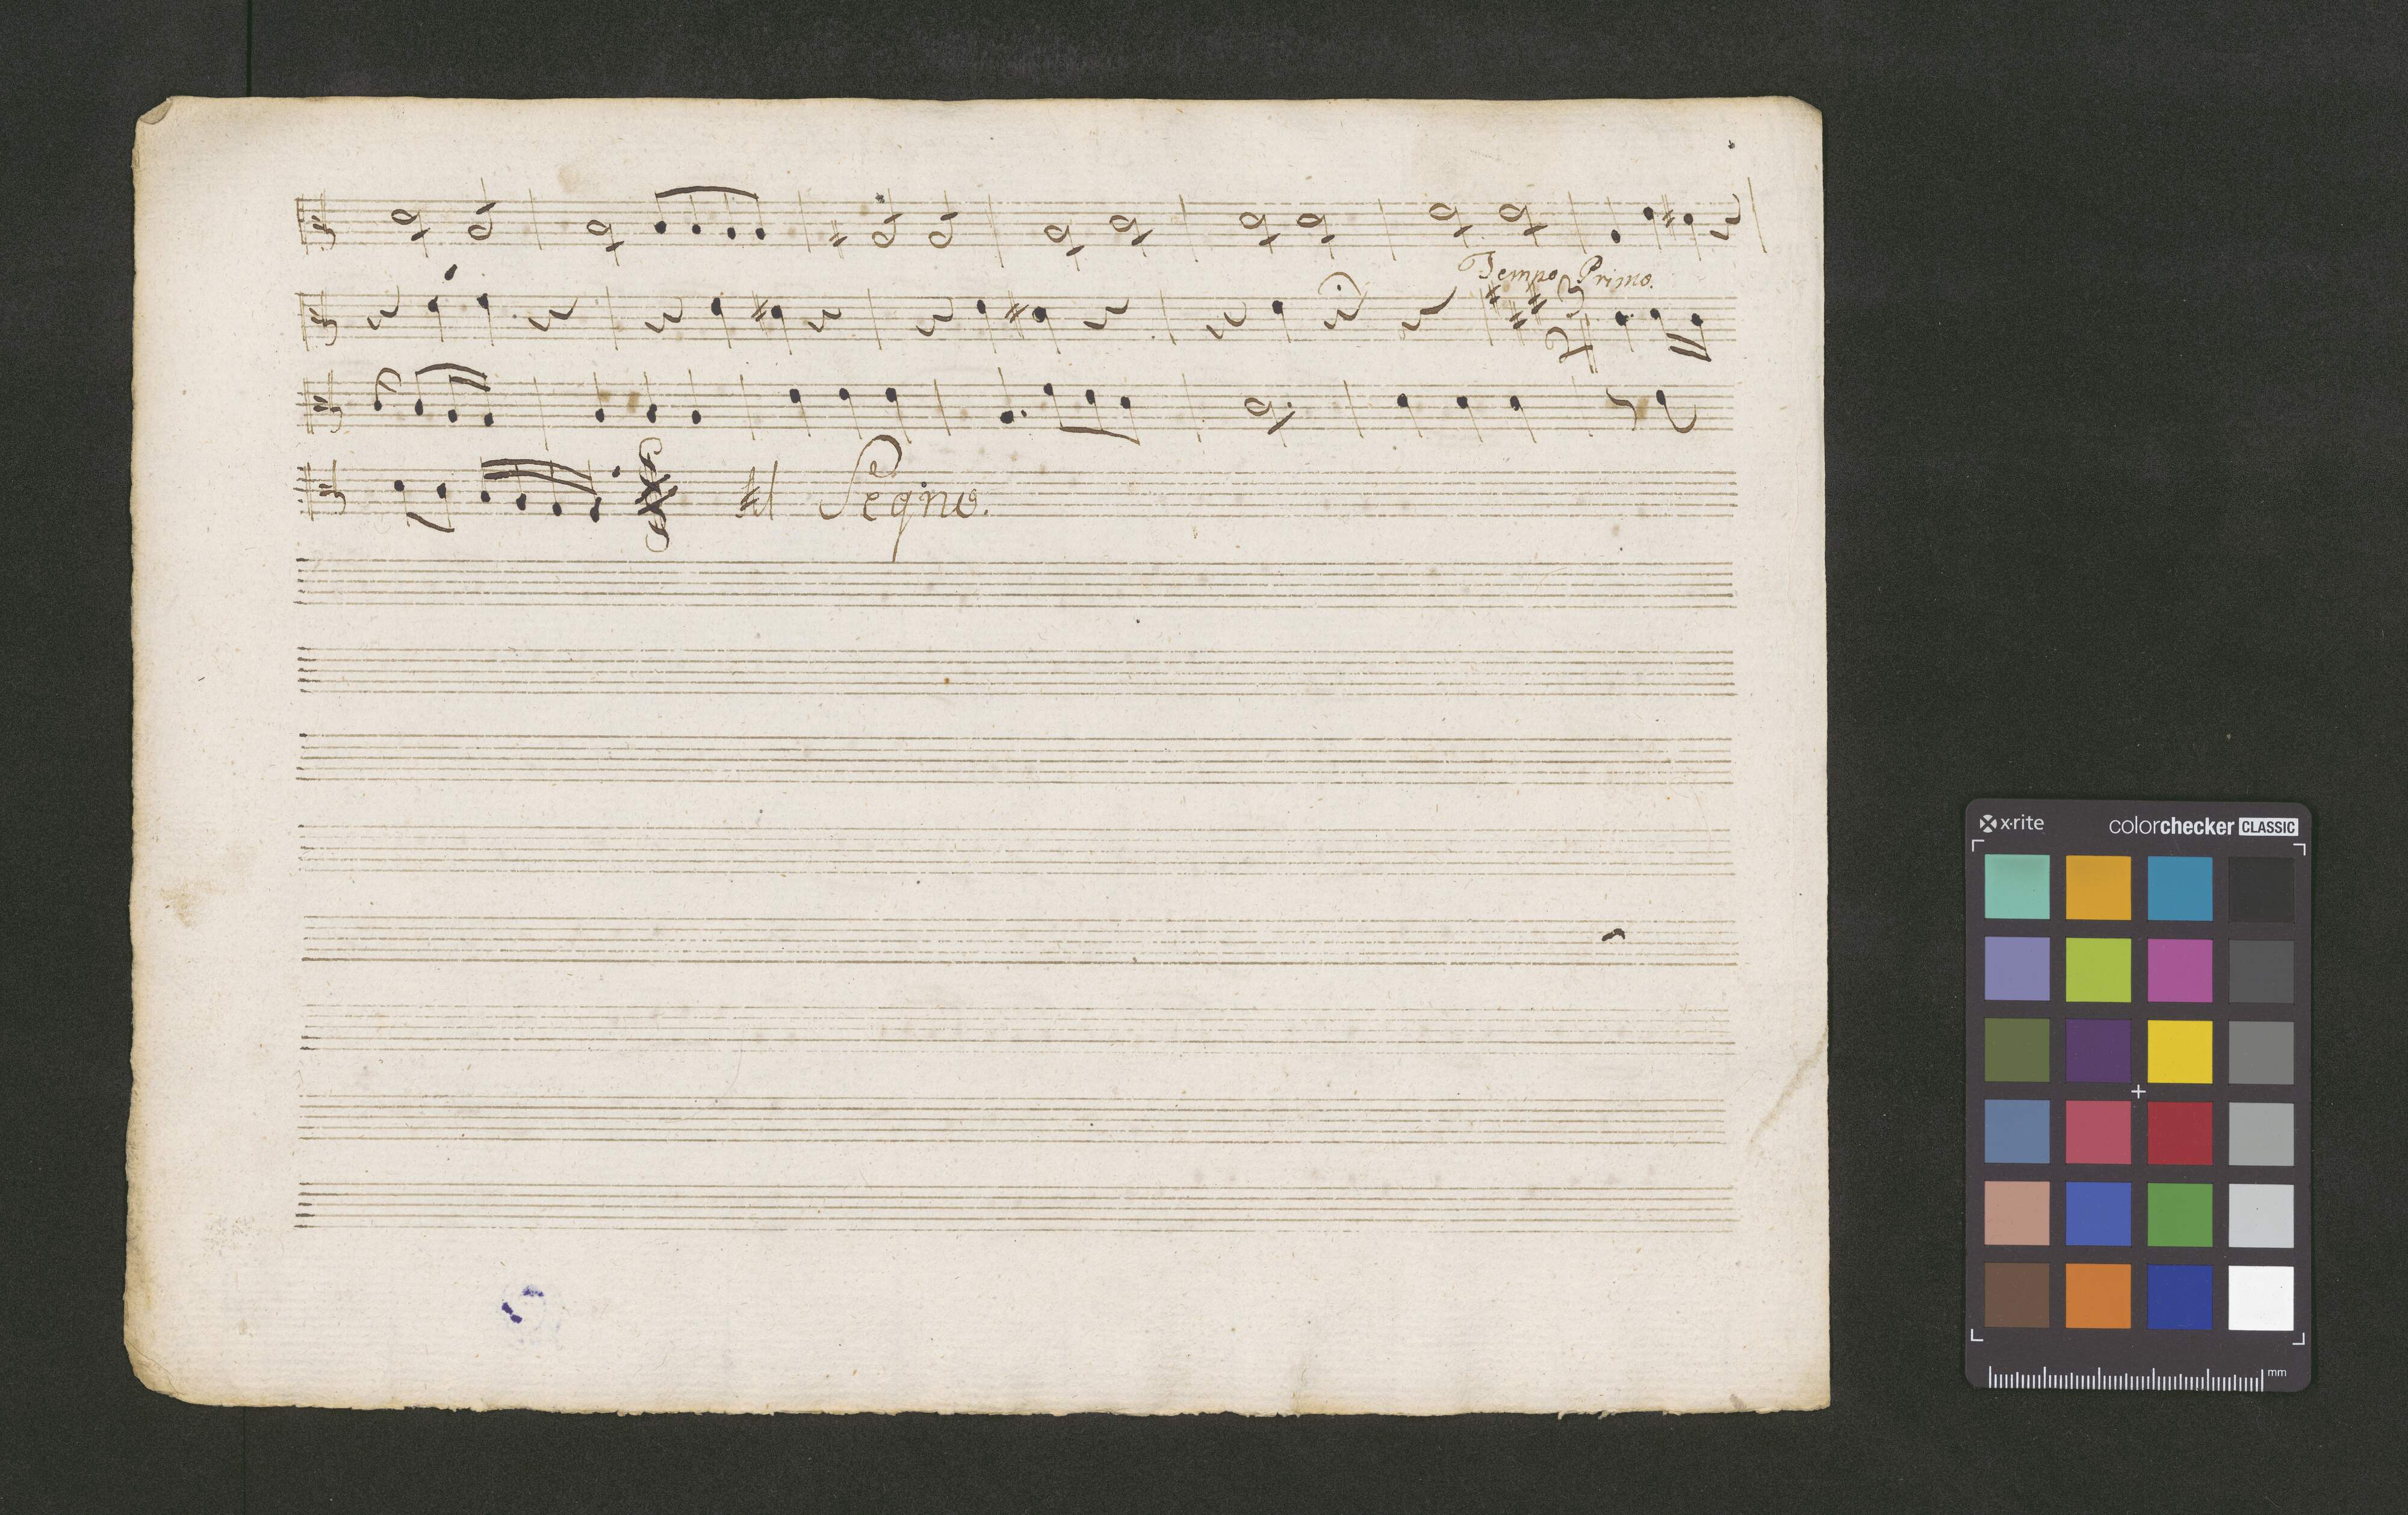 Tempo Primo.
al Segno.
x·rite
colorchecker CLASSIC
mm